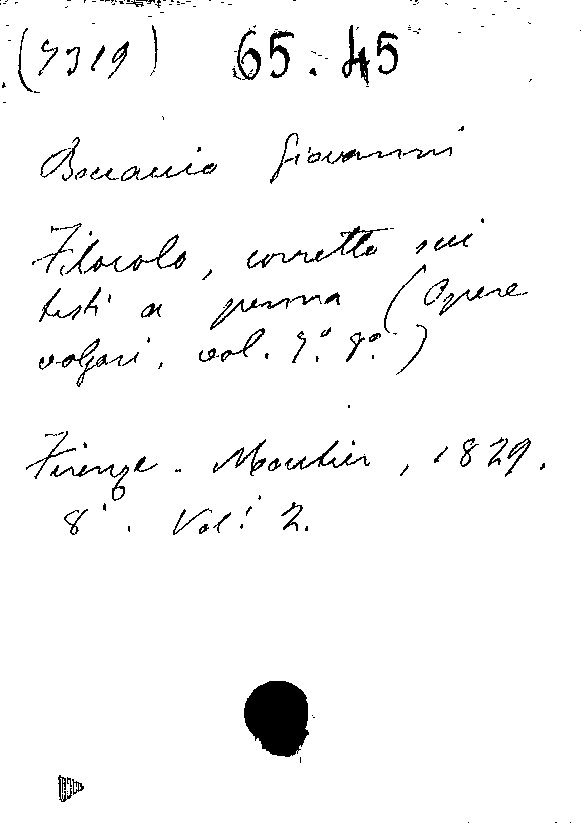 (7319) 65.45
Boccaccio Giovanni
Filocolo, corretto sui
testi a penna (Opere
volgari. vol. 7.° 8.°)
Firenze - Moutier, 1829.
8°. Vol.i 2.